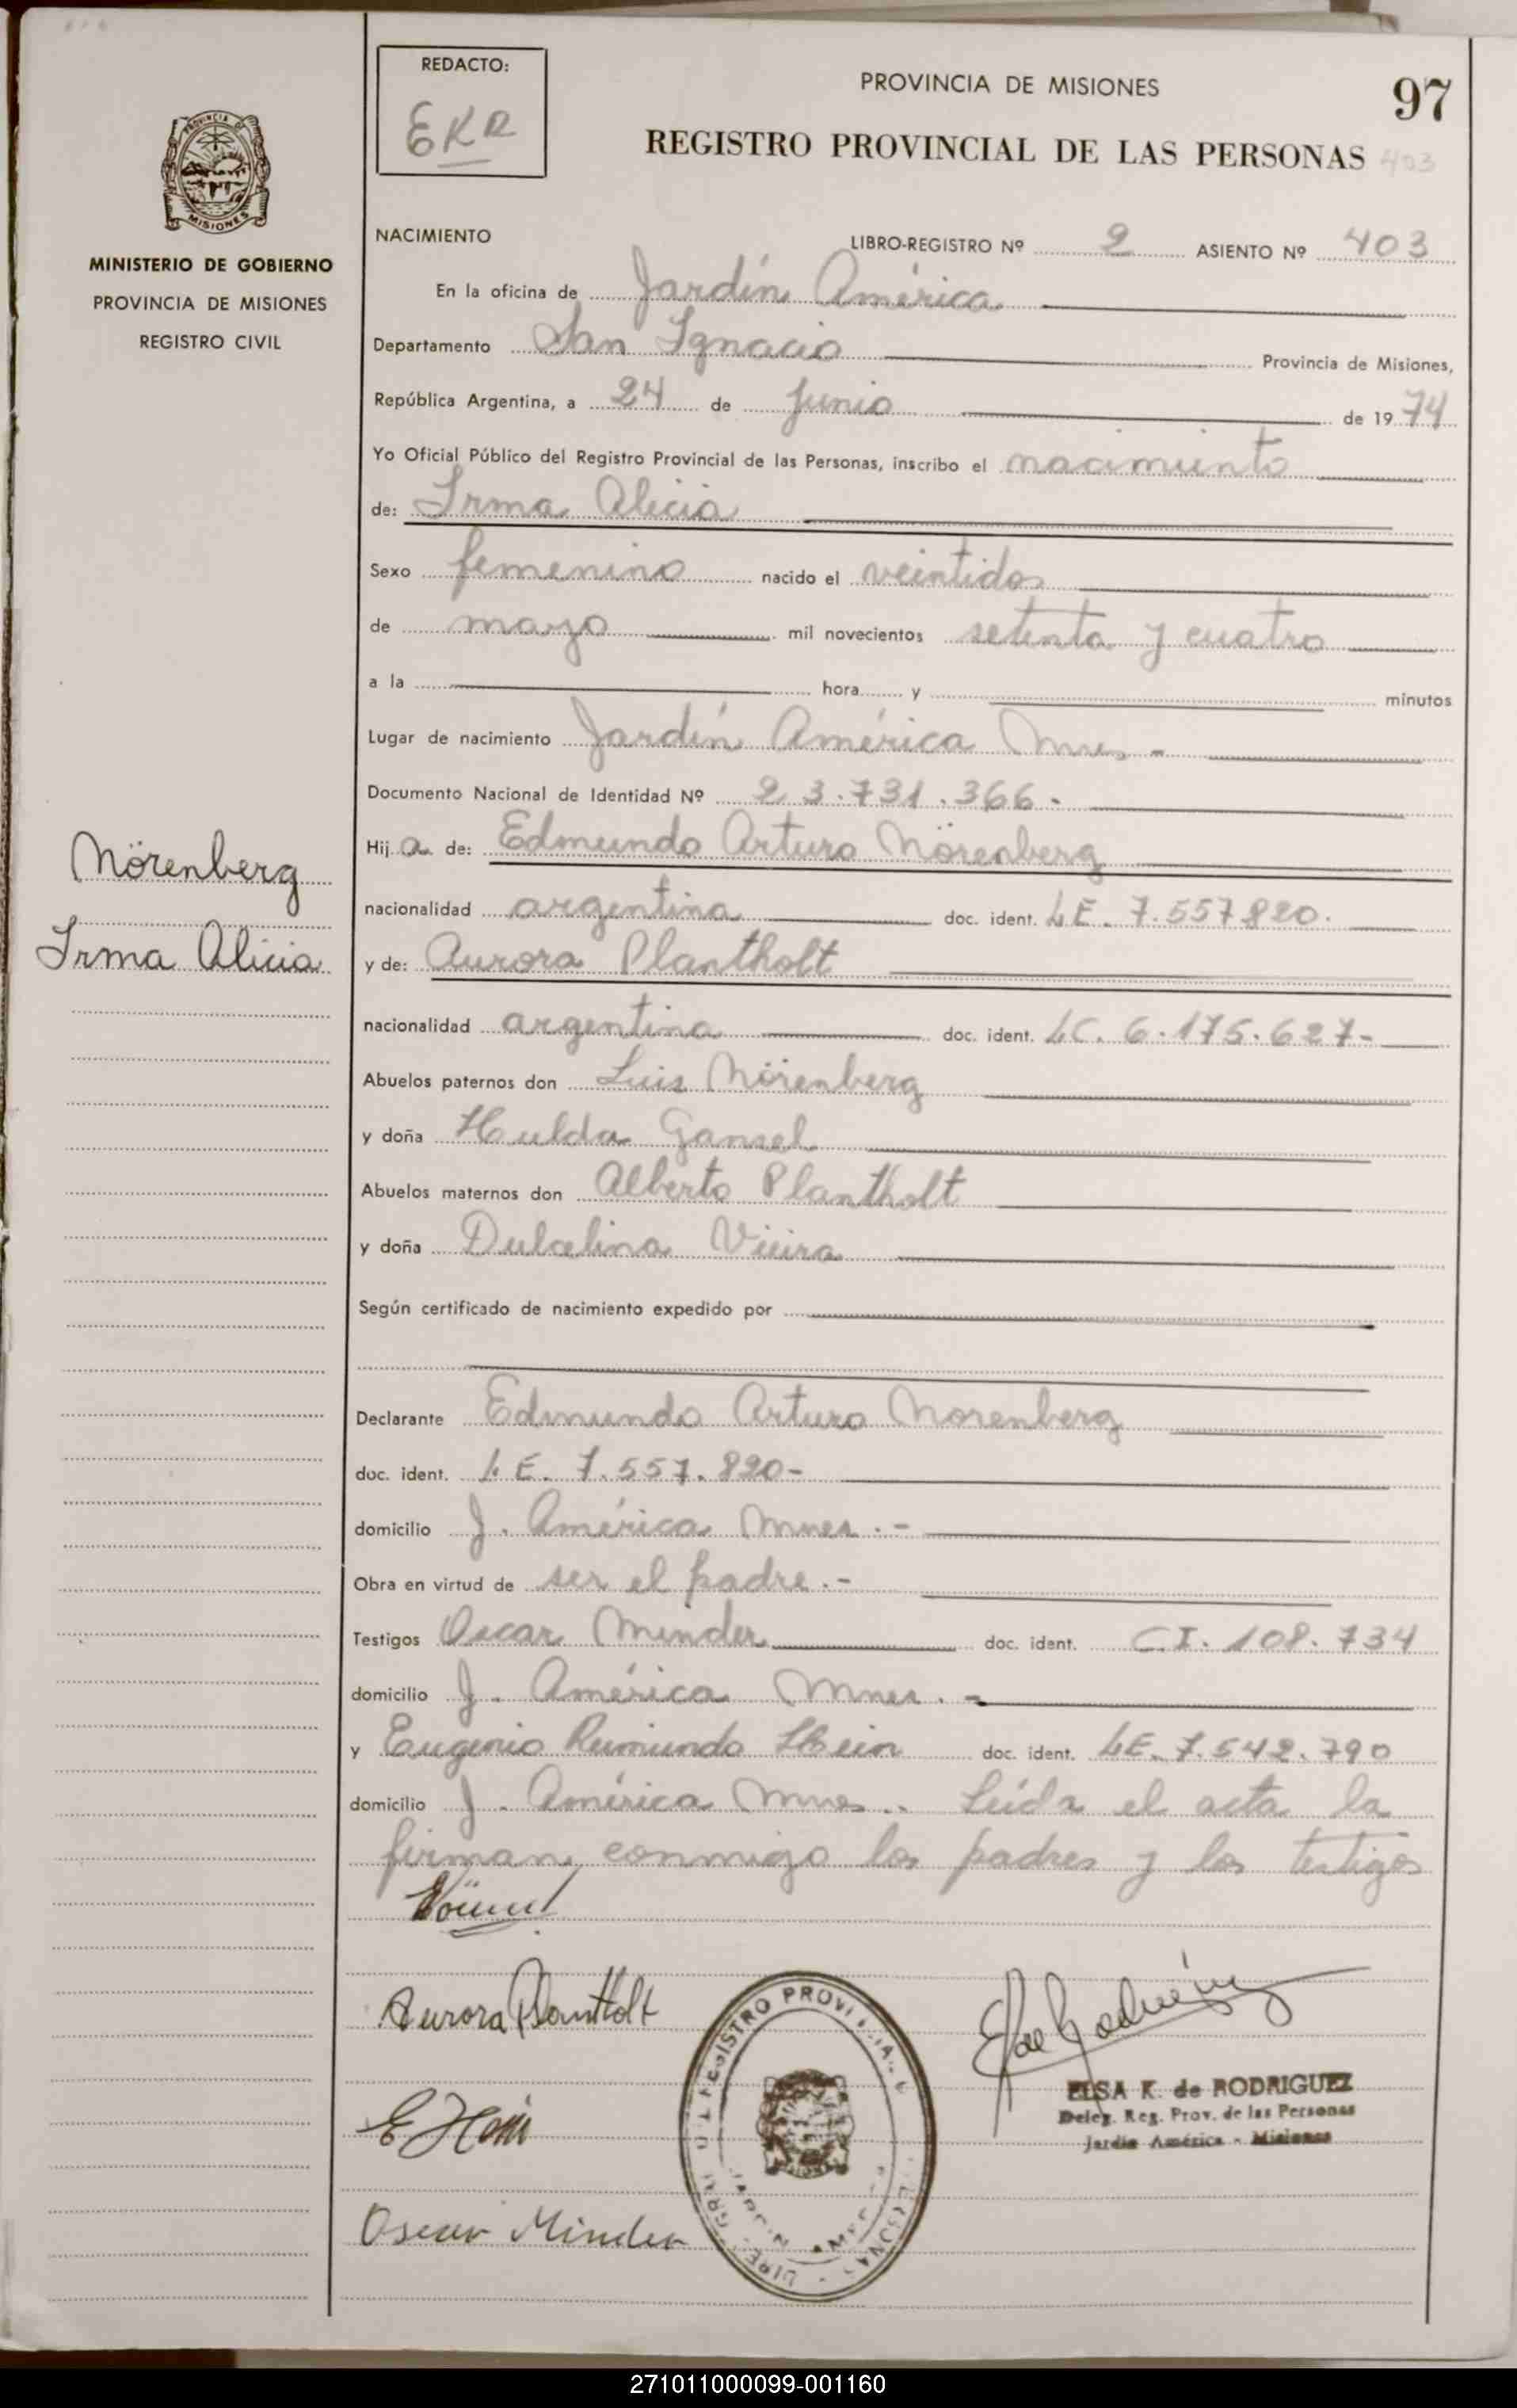 REDACTO:
EKR
PROVINCIA DE MISIONES
97
REGISTRO PROVINCIAL DE LAS PERSONAS 403
PROVINCIA DE
MISIONES
MINISTERIO DE GOBIERNO
PROVINCIA DE MISIONES
REGISTRO CIVIL
NACIMIENTO
LIBRO-REGISTRO Nº 2 ASIENTO Nº 403
En la oficina de Jardín América
Departamento San Ignacio Provincia de Misiones,
República Argentina, a 24 de junio de 19 74
Yo Oficial Público del Registro Provincial de las Personas, inscribo el nacimiento
de: Irma Alicia
Sexo femenino nacido el veintidos
de mayo mil novecientos setenta y cuatro
a la hora y minutos
Lugar de nacimiento Jardín América Mnes -
Documento Nacional de Identidad Nº 23.731.366.
Hij a de: Edmundo Arturo Nörenberg
nacionalidad argentina doc. ident. LE. 7.557.820.
y de: Aurora Plantholt
nacionalidad argentina doc. ident. LC. 6.175.627-
Abuelos paternos don Luis Nörenberg
y doña Hulda Gansel
Abuelos maternos don Alberto Plantholt
y doña Dulcelina Vieira
Según certificado de nacimiento expedido por
Declarante Edmundo Arturo Norenberg
doc. ident. LE. 7.557.820-
domicilio J. América Mnes.-
Obra en virtud de ser el padre.-
Testigos Oscar Minder doc. ident. C.I. 108.734
domicilio J. América Mnes. -
y Eugenio Reimundo Hein doc. ident. LE. 7.542.790
domicilio J. América Mnes.. Leída el acta la
firman conmigo los padres y los testigos
Nörenberg
Irma Alicia
Aurora Plantholt
E Hein
Oscar Minder
ELSA K. de RODRIGUEZ
Deleg. Reg. Prov. de las Personas
Jardín América - Misiones
271011000099-001160